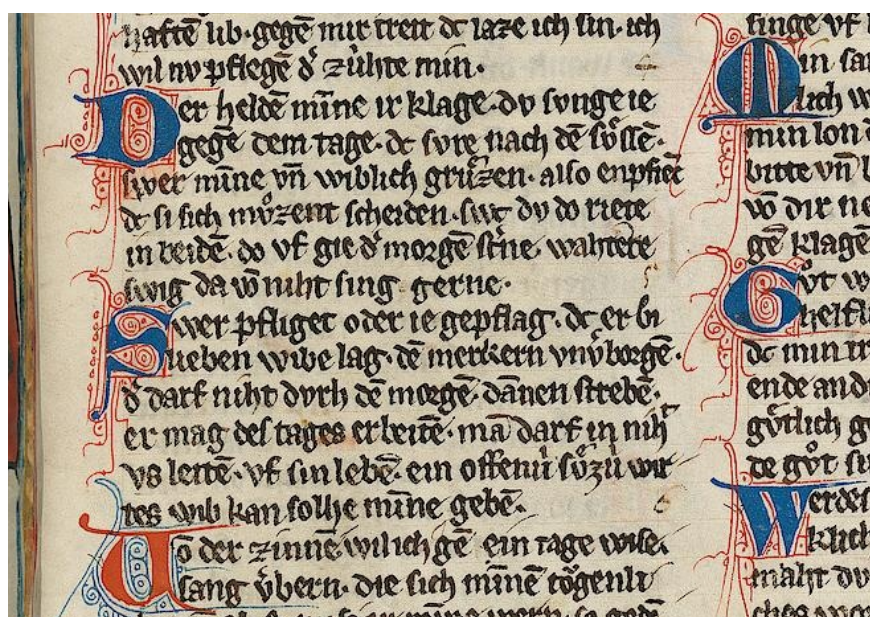 haftē lib · gegē mir treit dc laze ich sin · ich
wil nv pflegē d̾ zùhte min ·
Der heldē mīne ir klage · dv svnge ie
gegē dem tage · dc svre nach dē sv̊ssē ·
swer mīne vn̄ wiblich grv̊zen · also enpfiēc
dc si sich mv̊zent scheiden · swc dv do riete
in beidē · do vf gie d̾ morgē st̾ne · wahtere
swig da vō niht sing gerne ·
Swer pfliget oder ie gepflag · dc er bi
lieben wibe lag · dē merkern vnv̾borgē ·
d̾ darf niht dvrh dē morgē · dānen strebē ·
er mag des tages erbeitē · mā darf in niht
vs leitē · vf sin lebē · ein offenù sv̊zù wir
tes wib kan solhe mīne gebē ·
Vō der zinnē wil ich gē ein tage wise
sang v̾bern · die sich mīnē tǒgenli
singe vf
Min
lich
min lon
bitte vn̄
vō dir
gē klagē
Gv̊t
dc min
ende
gv̊tlich
de gv̊t
Werdes
klich
maht dv